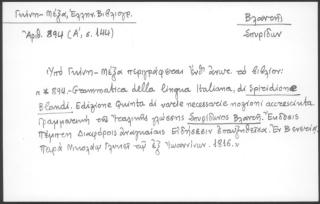 Γκίνη - Μέξα, Ἑλλην. Βιβλιογρ.
Ἀρθ. 894 (Α', σ. 144)
Βλαντῆ
Σπυρίδων
Ὑπὸ Γκίνη - Μέξα περιγράφεται
τὸ βιβλίον:
"* 894.- Grammatica della lingua Italiana, di Spiridione
Blandi. Edizione Quinta di varie necessarie nozioni accresciuta
Γραμματικὴ τῆς Ἰταλικῆς γλώσσης Σπυρίδωνος Βλαντῆ. Ἔκδοσις
πέμπτη Διαφόροις ἀναγκαίαις εἰδήσεσιν ἐπαυξηθεῖσα. Ἐν Βενετίᾳ,
Παρὰ Νικολάῳ Γλυκεῖ τῷ ἐξ Ἰωαννίνων. 1816."